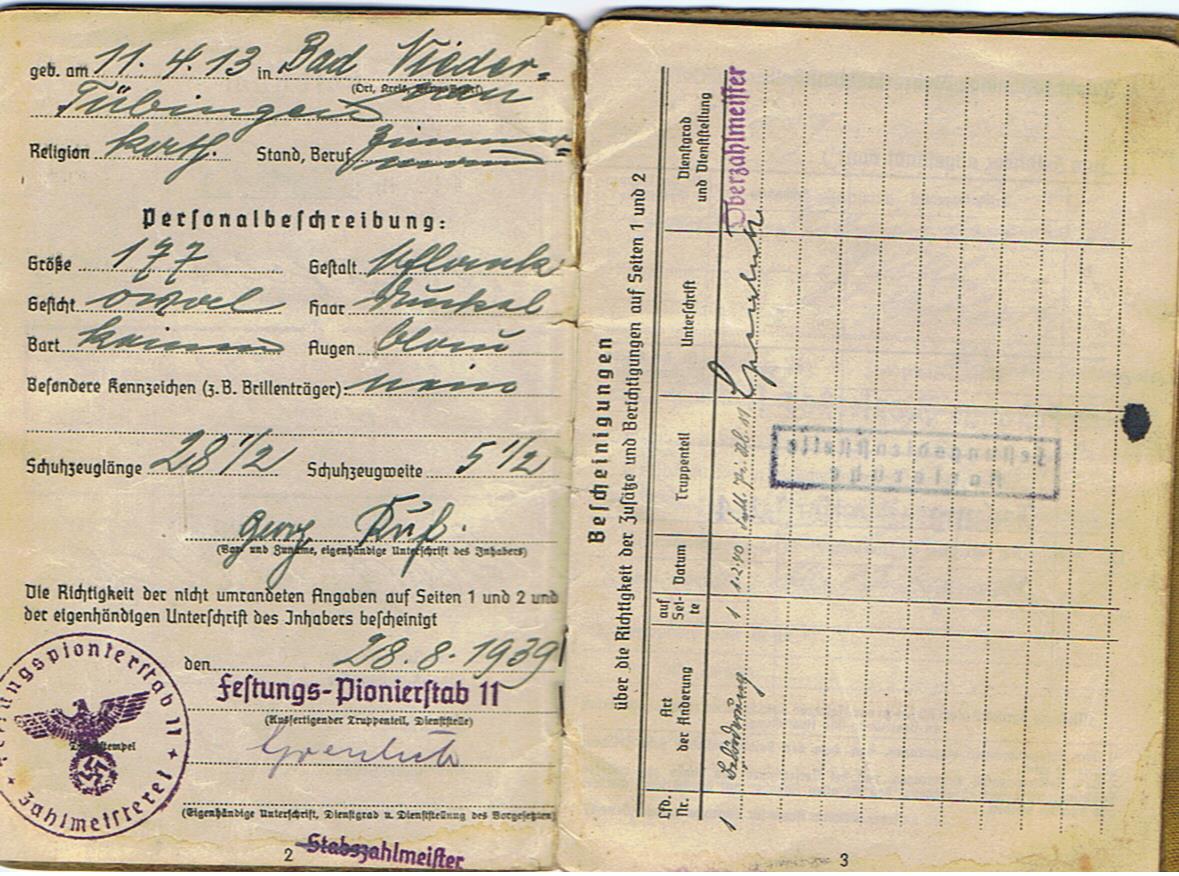 geb. am 11. 4. 13 in Bad Nieder=
(Ort, Kreis, Verw.-Bezirk) nau
Tübingen
Religion kath. Stand, Beruf Zimmer=
mann
Personalbeschreibung:
Größe 177 Gestalt schlank
Gesicht oval Haar dunkel
Bart keinen Augen blau
Besondere Kennzeichen (z.B. Brillenträger): nein
Schuhzeuglänge 28 1/2 Schuhzeugweite 5 1/2
Georg Ruf.
(Vor- und Zuname, eigenhändige Unterschrift des Inhabers)
Die Richtigkeit der nicht umrandeten Angaben auf Seiten 1 und 2 und
der eigenhändigen Unterschrift des Inhabers bescheinigt
den 28.8.1939
Festungs-Pionierstab 11
(Ausfertigender Truppenteil, Dienststelle)
(Eigenhändige Unterschrift, Dienstgrad u. Dienststellung des Vorgesetzten)
Stabszahlmeister
2
Festungspionierstab 11
Dienststempel
Zahlmeisterei
Bescheinigungen
über die Richtigkeit der Zusätze und Berichtigungen auf Seiten 1 und 2
Lfd. Nr.
Art der Änderung
auf Seite
Datum
Truppenteil
Unterschrift
Dienstgrad und Dienststellung
1 Beförderung 1 1.2.40 Pi. 11 Oberzahlmeister
Festungsdienststelle
Karlsruhe
3